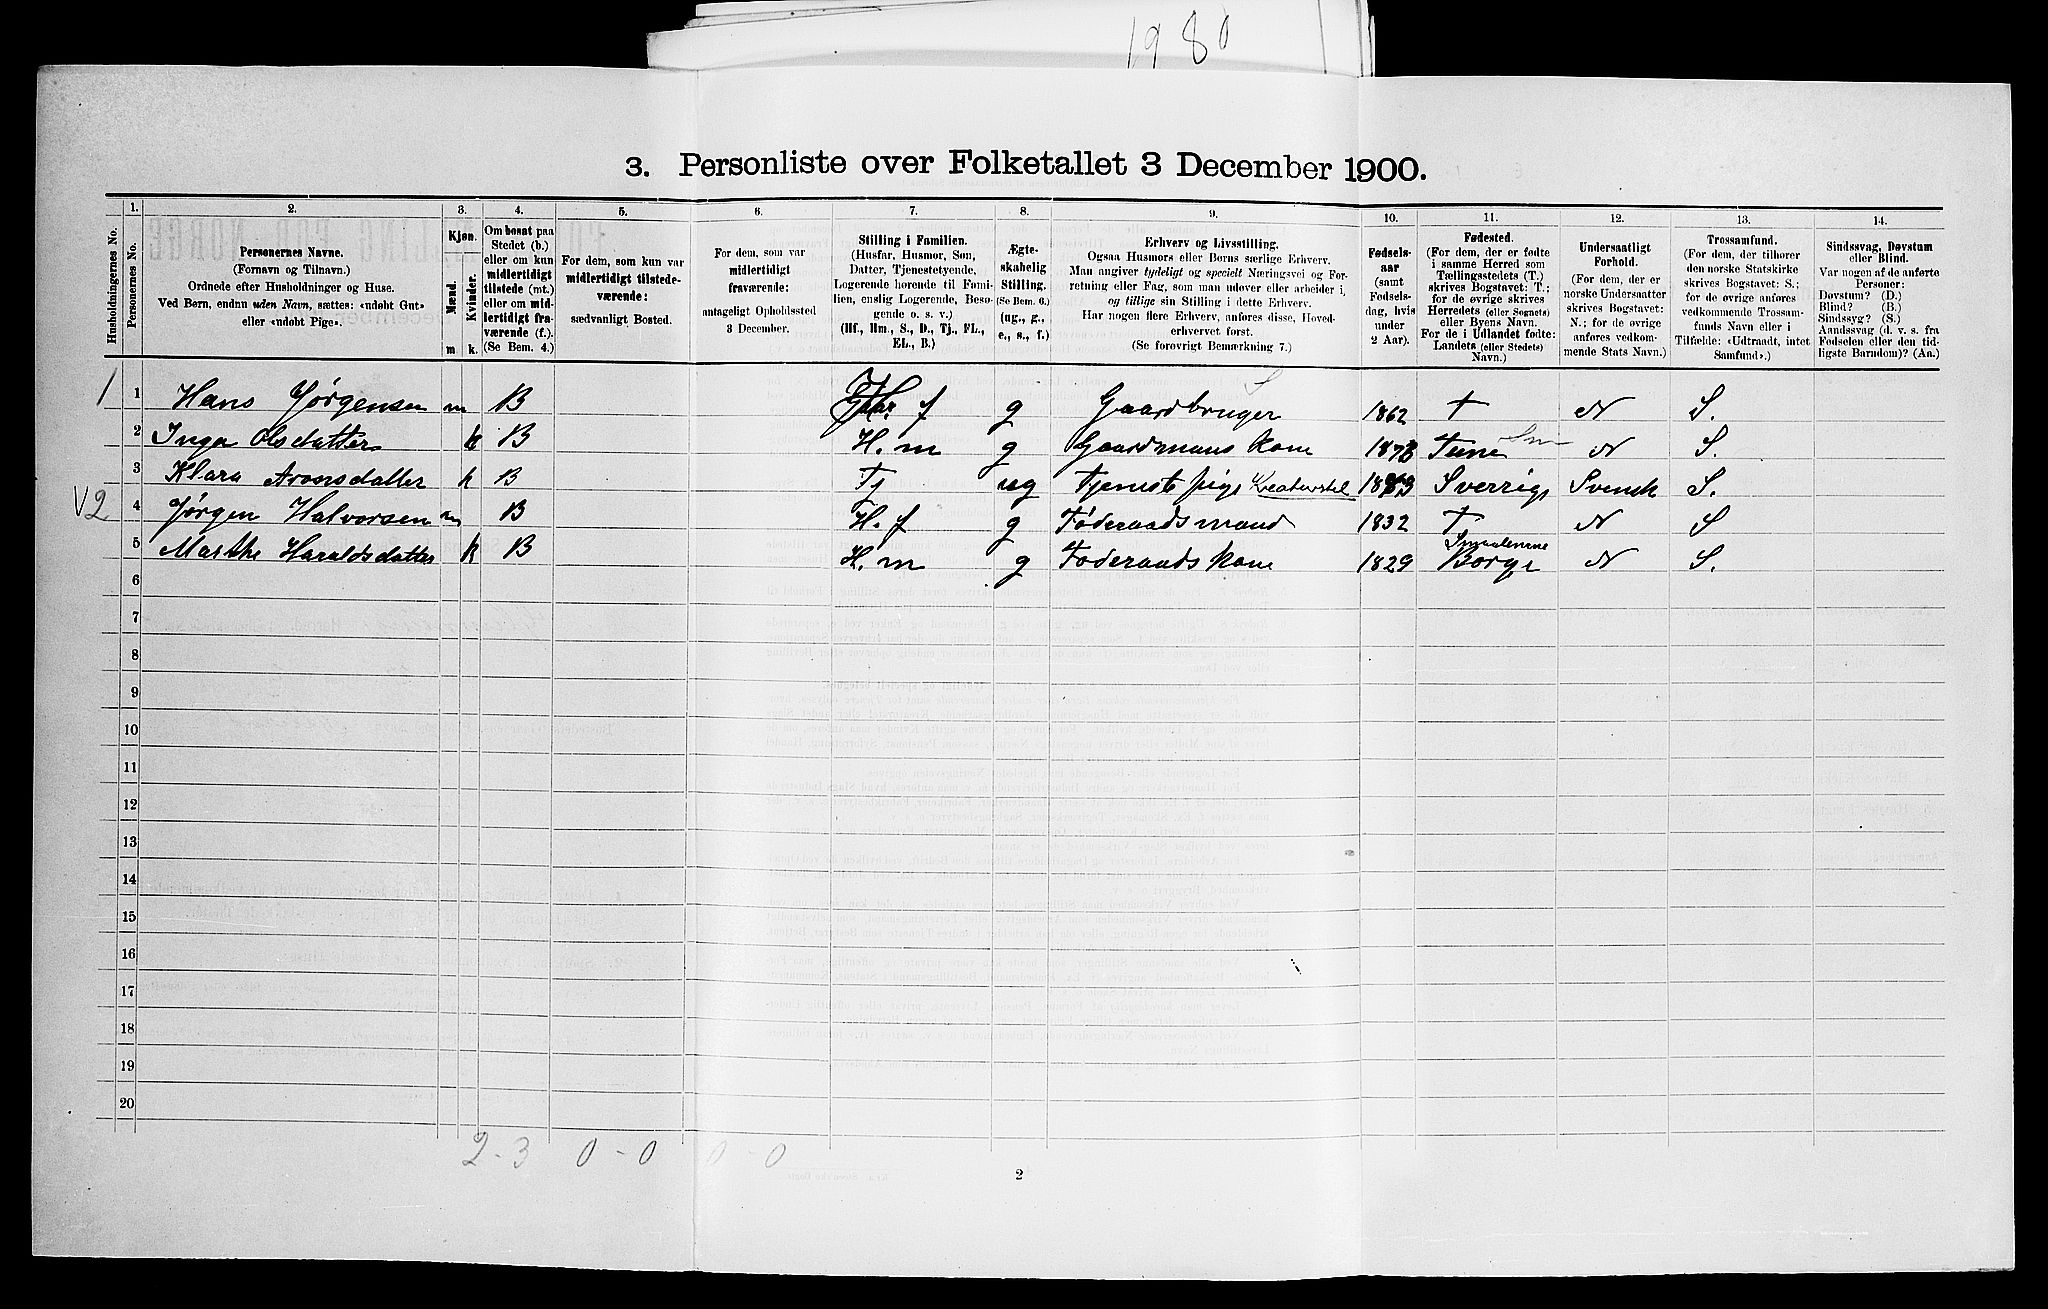 1980
3. Personliste over Folketallet 3 December 1900.
1. 2. 3. 4. 5. 6. 7. 8. 9. 10. 11. 12. 13. 14.
Husholdningernes No.
Personernes No.
Personernes Navne.
(Fornavn og Tilnavn.)
Ordnede efter Husholdninger og Huse.
Ved Børn, endnu uden Navn, sættes: «udøbt Gut»
eller «udøbt Pige».
Kjøn.
Mænd.
Kvinder.
m k.
Om bosat paa
Stedet (b.)
eller om kun
midlertidigt
tilstede (mt.)
eller om mid-
lertidigt fra-
værende (f.).
(Se Bem. 4.)
For dem, som kun var
midlertidigt tilstede-
værende:
sædvanligt Bosted.
For dem, som var
midlertidigt
fraværende:
antageligt Opholdssted
3 December.
Stilling i Familien.
(Husfar, Husmor, Søn,
Datter, Tjenestetyende,
Logerende hørende til Fami-
lien, enslig Logerende, Besø-
gende o. s. v.)
(Hf., Hm., S., D., Tj., FL.,
EL., B.)
Ægte-
skabelig
Stilling.
(Se Bem. 6.)
(ug., g.,
e., s., f.)
Erhverv og Livsstilling.
Ogsaa Husmors eller Børns særlige Erhverv.
Man angiver tydeligt og specielt Næringsvei og For-
retning eller Fag, som man udøver eller arbeider i,
og tillige sin Stilling i dette Erhverv.
Har nogen flere Erhverv, anføres disse, Hoved-
erhvervet først.
(Se forøvrigt Bemærkning 7.)
Fødsels-
aar
(samt
Fødsels-
dag, hvis
under
2 Aar).
Fødested.
(For dem, der er fødte
i samme Herred som
Tællingsstedets (T.)
skrives Bogstavet: T.;
for de øvrige skrives
Herredets (eller Sognets)
eller Byens Navn.
For de i Udlandet fødte:
Landets (eller Stedets)
Navn.)
Undersaatligt
Forhold.
(For dem, der er
norske Undersaatter
skrives Bogstavet:
N.; for de øvrige
anføres vedkom-
mende Stats Navn.)
Trossamfund.
(For dem, der tilhører
den norske Statskirke
skrives Bogstavet: S.;
for de øvrige anføres
vedkommende Trossam-
funds Navn eller i
Tilfælde: «Udtraadt, intet
Samfund».)
Sindssvag, Døvstum
eller Blind.
Var nogen af de anførte
Personer:
Døvstum? (D.)
Blind? (B.)
Sindssyg? (S.)
Aandssvag (d. v. s. fra
Fødselen eller den tid-
ligste Barndom)? (Aa.)
1 1 Hans Jørgensen m B H f g Gaardbruger 1862 T N S.
2 Inga Olsdatter k B H. m g Gaardmans kone Tune Sm N S.
3 Klara Aronsdatter k B Tj ug Tjeneste pige Kreaturstel Sverrige Svensk S.
V2 4 Jørgen Halvorsen m B H. f g Føderaadsmand 1832 T N S
5 Marthe Haraldsdatter k B H. m g Føderaads kone 1829 Smaalenene Borge N S.
6
7
8
9
10
11
12
13
14
15
16
17
18
19
20
2 - 3 0 - 0 0 - 0
2